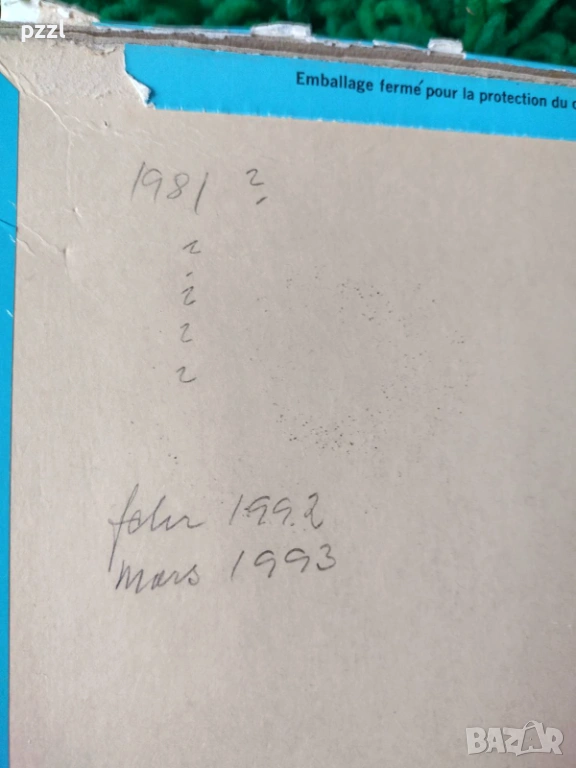 pzzl
Emballage fermé pour la protection du
1981 ?
?
?
?
?
fevr 1992
mars 1993
BAZAR